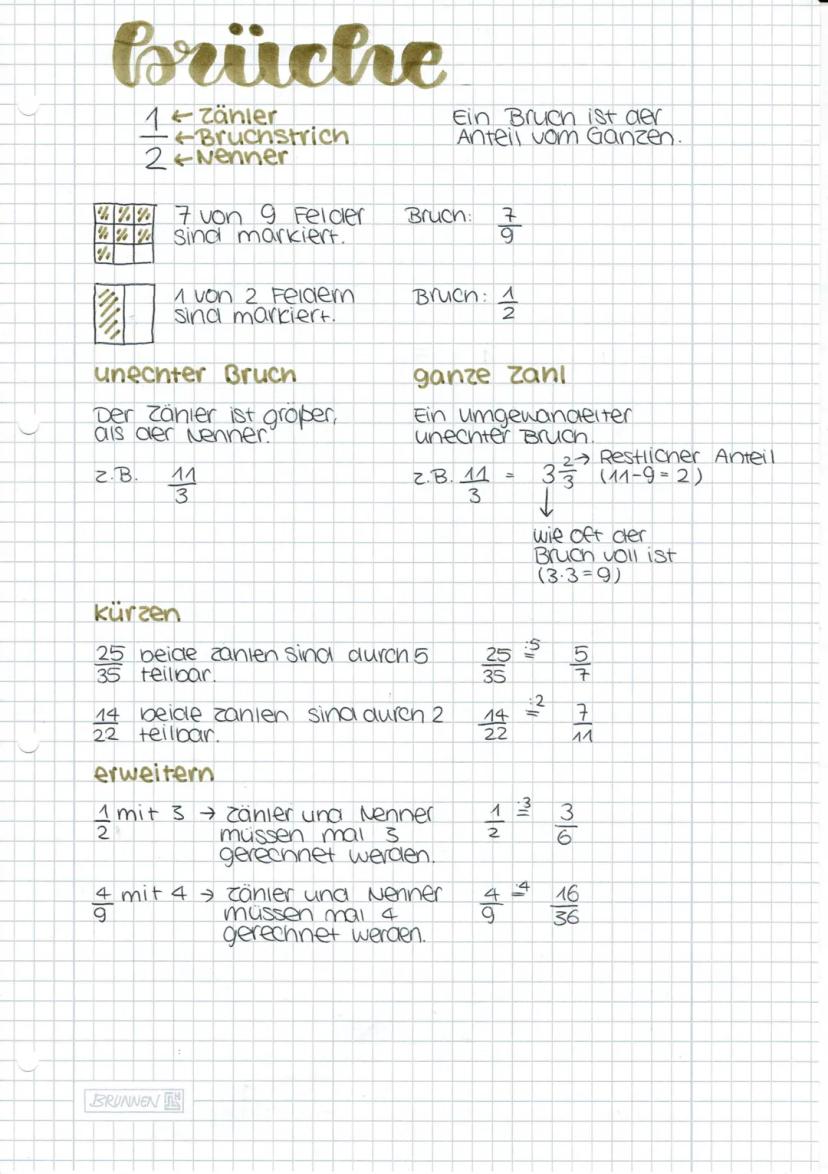 brüche
1 ← Zähler
← Bruchstrich
2 ← Nenner
Ein Bruch ist der
Anteil vom Ganzen.
7 von 9 Felder
sind markiert.
Bruch: 7/9
1 von 2 Feldern
sind markiert.
Bruch: 1/2
unechter Bruch
Der Zähler ist größer,
als der Nenner.
z.B. 11/3
ganze Zahl
Ein umgewandelter
unechter Bruch.
z.B. 11/3 = 3 2/3 → Restlicher Anteil
(11-9=2)
↓
wie oft der
Bruch voll ist
(3·3=9)
kürzen
25/35 beide Zahlen sind durch 5
teilbar.
25/35 :5= 5/7
14/22 beide Zahlen sind durch 2
teilbar.
14/22 :2= 7/11
erweitern
1/2 mit 3 → Zähler und Nenner
müssen mal 3
gerechnet werden.
1/2 ·3= 3/6
4/9 mit 4 → Zähler und Nenner
müssen mal 4
gerechnet werden.
4/9 ·4= 16/36
BRUNNEN